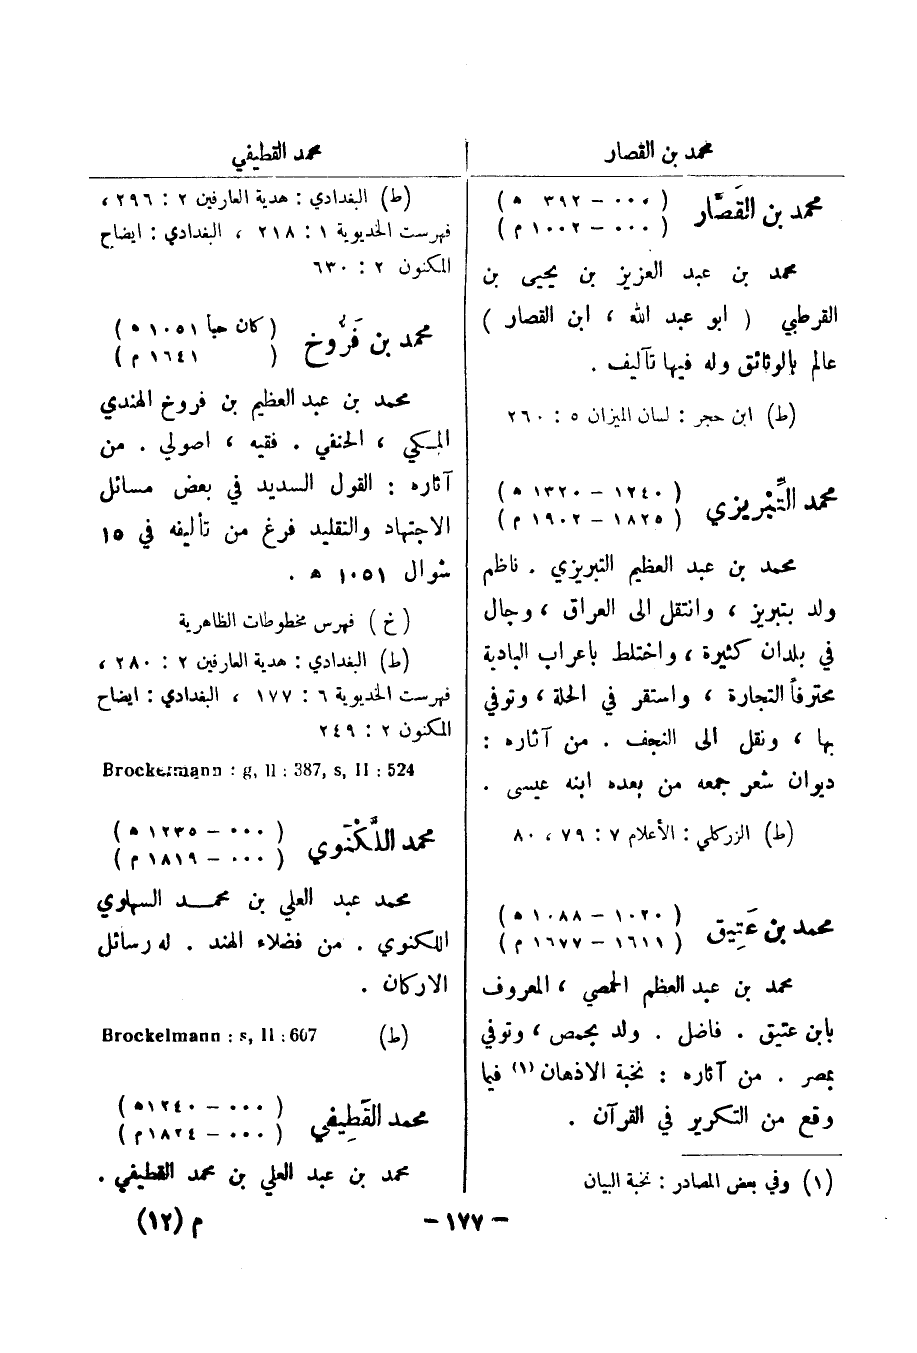 محمد بن القصار
محمد بن القَصَّار
( ٠٠٠ – ٣٩٢ ه )
( ٠٠٠ – ١٠٠٢ م )
محمد بن عبد العزيز بن يحيى بن
القرطبي ( ابو عبد الله ، ابن القصار )
عالم بالوثائق وله فيها تآليف .
(ط) ابن حجر : لسان الميزان ٥ : ٢٦٠
محمد التَّبْرِيزي
( ١٢٤٠ – ١٣٢٠ ه )
( ١٨٢٥ – ١٩٠٢ م )
محمد بن عبد العظيم التبريزي . ناظم
ولد بتبريز ، وانتقل الى العراق ، وجال
في بلدان كثيرة ، واختلط باعراب البادية
محترفاً التجارة ، واستقر في الحلة ، وتوفي
بها ، ونقل الى النجف . من آثاره :
ديوان شعر جمعه من بعده ابنه عيسى .
(ط) الزركلي : الأعلام ٧ : ٧٩ ، ٨٠
محمد بن عَتِيق
( ١٠٢٠ – ١٠٨٨ ه )
( ١٦١١ – ١٦٧٧ م )
محمد بن عبد العظم الحمصي ، المعروف
بابن عتيق . فاضل . ولد بحمص ، وتوفي
بمصر . من آثاره : نخبة الاذهان (١) فيما
وقع من التكرير في القرآن .
(١) وفي بعض المصادر : نخبة البيان
محمد القطيفي
(ط) البغدادي : هدية العارفين ٢ : ٢٩٦ ،
فهرست الخديوية ١ : ٢١٨ ، البغدادي : ايضاح
المكنون ٢ : ٦٣٠
محمد بن فَرُّوخ
( كان حياً ١٠٥١ ه )
( ١٦٤١ م )
محمد بن عبد العظيم بن فروخ الهندي
المكي ، الحنفي . فقيه ، اصولي . من
آثاره : القول السديد في بعض مسائل
الاجتهاد والتقليد فرغ من تأليفه في ١٥
شوال ١٠٥١ ه .
( خ ) فهرس مخطوطات الظاهرية
(ط) البغدادي : هدية العارفين ٢ : ٢٨٠ ،
فهرست الخديوية ٦ : ١٧٧ ، البغدادي : ايضاح
المكنون ٢ : ٢٤٩
Brockermann : g, II : 387, s, II : 524
محمد اللَّكْنَوي
( ٠٠٠ – ١٢٣٥ ه )
( ٠٠٠ – ١٨١٩ م )
محمد عبد العلي بن محمد السهاوي
اللكنوي . من فضلاء الهند . له رسائل
الاركان .
(ط) Brockelmann : s, II : 607
محمد القَطِيفي
( ٠٠٠ – ١٢٤٠ ه )
( ٠٠٠ – ١٨٢٤ م )
محمد بن عبد العلي بن محمد القطيفي .
– ١٧٧ –
م (١٢)